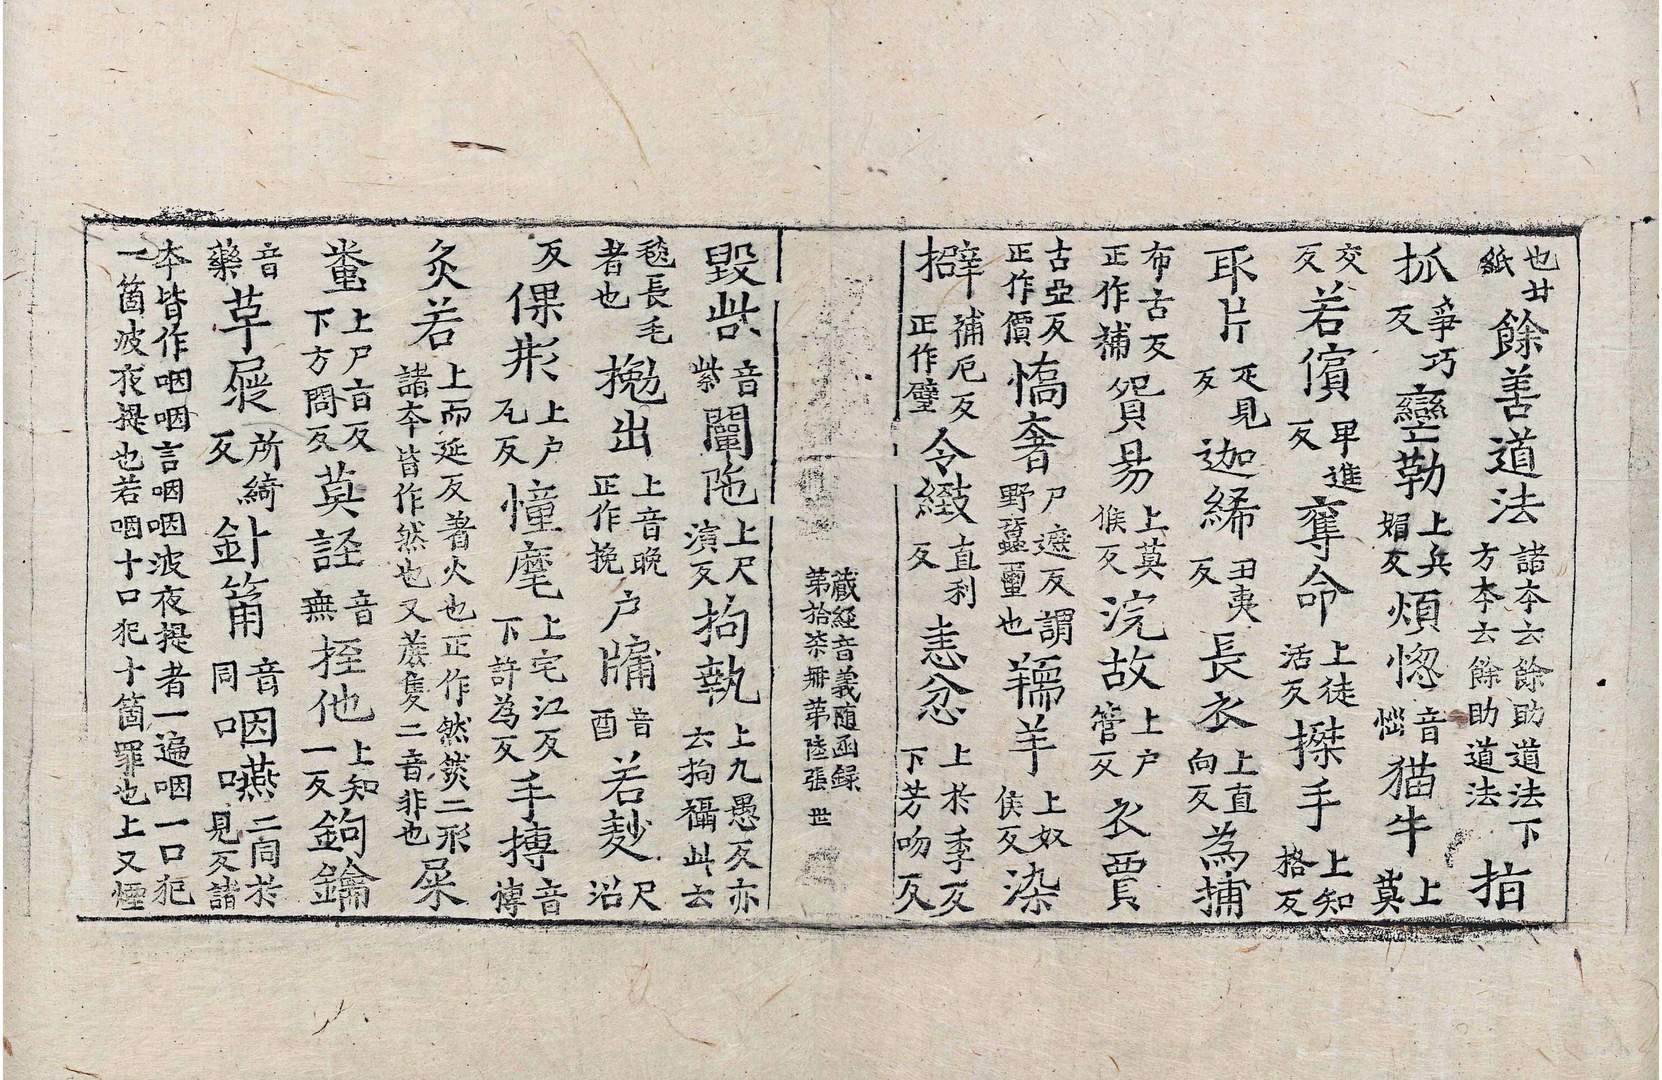 也廿紙餘善道法諸夲云餘助道法下方夲云餘助道法抬
抓爭巧反𮣰勒上兵媚反煩惚音惱猫牛上莫
交反若儐畢進反奪命上徒活反搩手上知格反
耴片疋見反迦絺丑夷反長衣上直向反為捕
布古反正作補貿昜上莫候反浣故上户管反衣賈
古亞反正作價憍奢尸遮反謂野蠶蠒也羺羊上奴侯反染
擗補厄反正作躄令緻直利反恚忿上於季反下芳吻反
藏經音義随函録第拾柒冊第陸張 世
毀呰音紫闡陁上尺演反拘執上九愚反亦云拘攝此云
毯長毛者也㧾出上音晚正作挽户牖音酉若麨尺沼
反倮形上户瓦反憧麾上宅江反下許為反手搏音博
灸若上而延反著火也正作然㷼二形諸夲皆作然也又蒺隻二音非也屎
𡊄上尸言反下方問反莫誙音無挃他上知一反鉤鑰
音藥草屣所綺反針筩音同口咽嚥二同於見反諸
夲皆作咽咽言咽咽波夜提者一遍咽一口犯
一箇波夜提也若咽十口犯十箇罪也上又煙